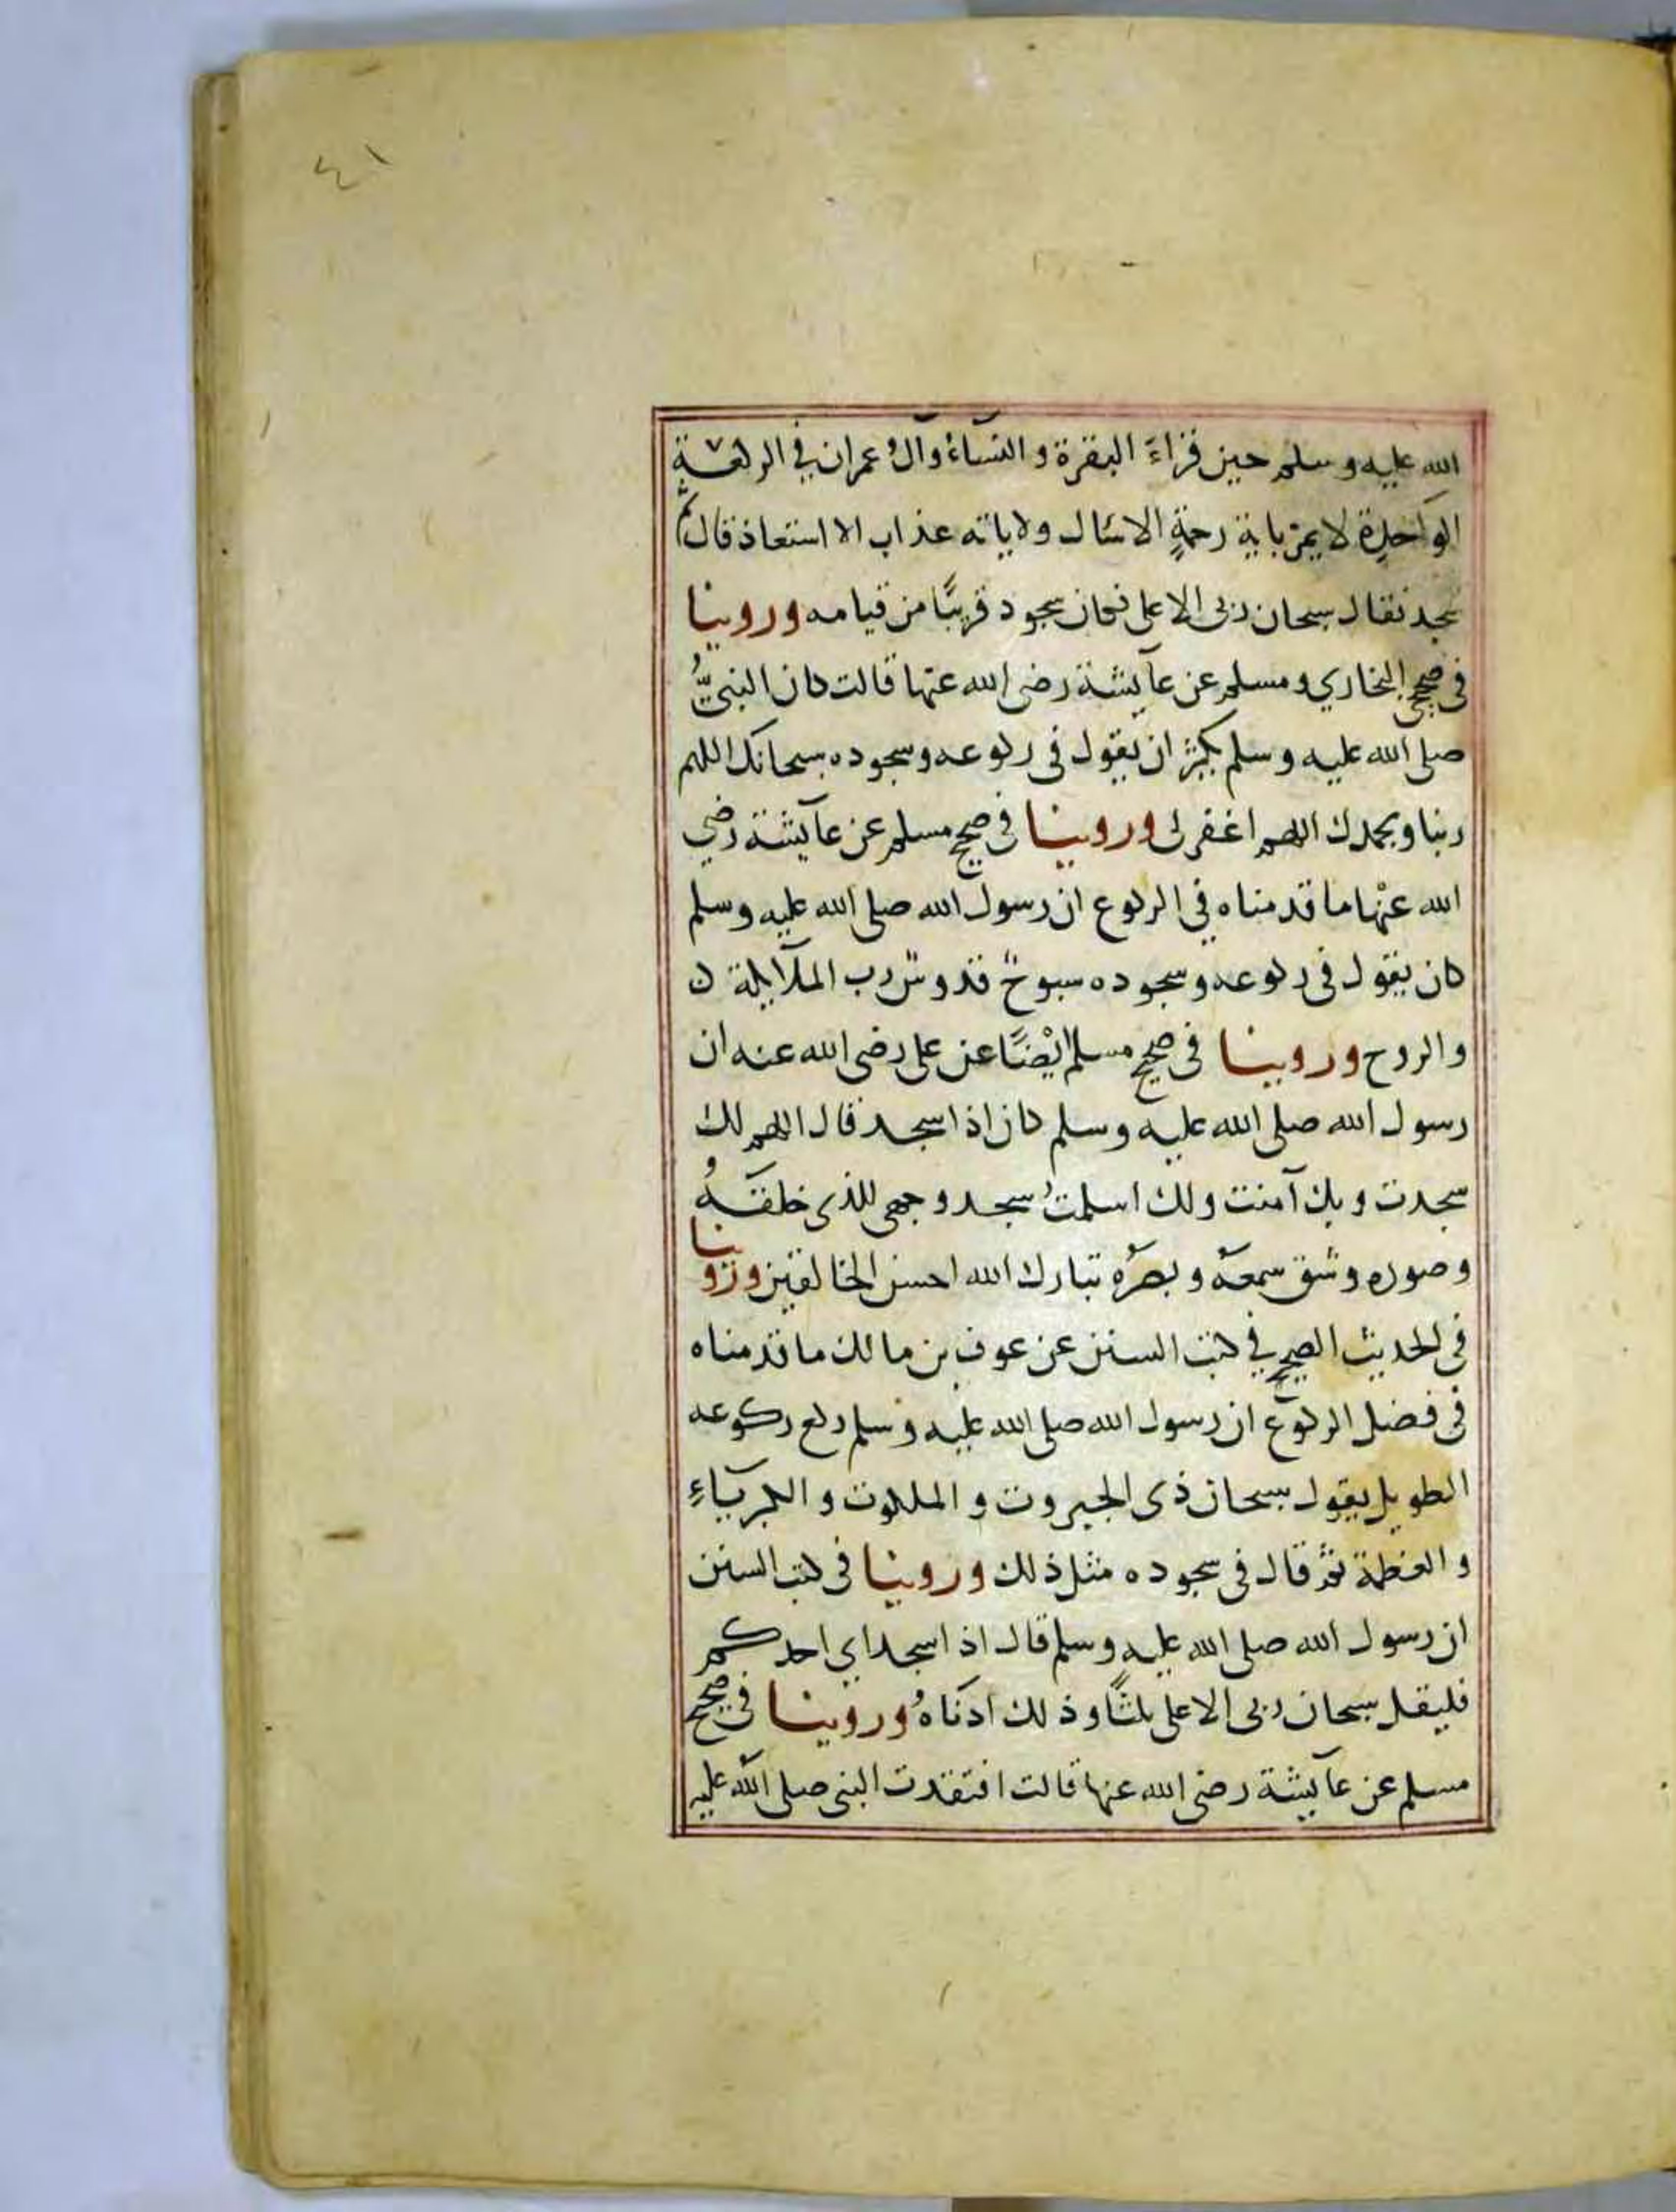 ٤١
الله عليه وسلم حين قراءَ البقرة والنسآءُ وآلُ عمران في الركعة
الواحدة لا يمر باية رحمةٍ الا سال ولا باته عذاب الا استعاذ قال ثم
سجد فقال سبحان ربى الاعلى فكان سجود قريبًا من قيامه وروينا
فى صحيحى البخاري ومسلم عن عآيشة رضى الله عنها قالت كان النبيُّ
صلى الله عليه وسلم يكثر ان يقول فى ركوعه وسجوده سبحانك اللهم
ربنا وبحمدك اللهم اغفر لى وروينا فى صحيح مسلم عن عآيشة رضي
الله عنْها ما قدمناه في الركوع ان رسول الله صلى الله عليه وسلم
كان يقول فى ركوعه وسجوده سبوحٌ قدوسٌ رب الملآيكة ن
والروح وروينا فى صحيح مسلم ايْضًا عن على رضى الله عنه ان
رسول الله صلى الله عليه وسلم كان اذا سجد قال اللهم لك
سجدت وبك آمنت ولك اسلمتُ سجد وجهى للذى خلقَهُ
وصوره وشق سمعهُ وبصرُه تبارك الله احسن الخالقين وروينا
فى الحديث الصحيح في كتب السنن عن عوف بن مالك ما قدمناه
فى فضل الركوع ان رسول الله صلى الله عليه وسلم ركع ركوعه
الطويل يقول سبحان ذى الجبروت والملكوت والكبريآءِ
والعظمة ثم قال فى سجوده مثل ذلك وروينا فى كتب السنن
ان رسول الله صلى الله عليه وسلم قال اذا سجد اي احدكم
فليقل سبحان ربى الاعلى ثلثًا وذلك ادنَاهُ وروينا فى صحيح
مسلم عن عآيشة رضى الله عنها قالت افتقدت النبى صلى الله عليه